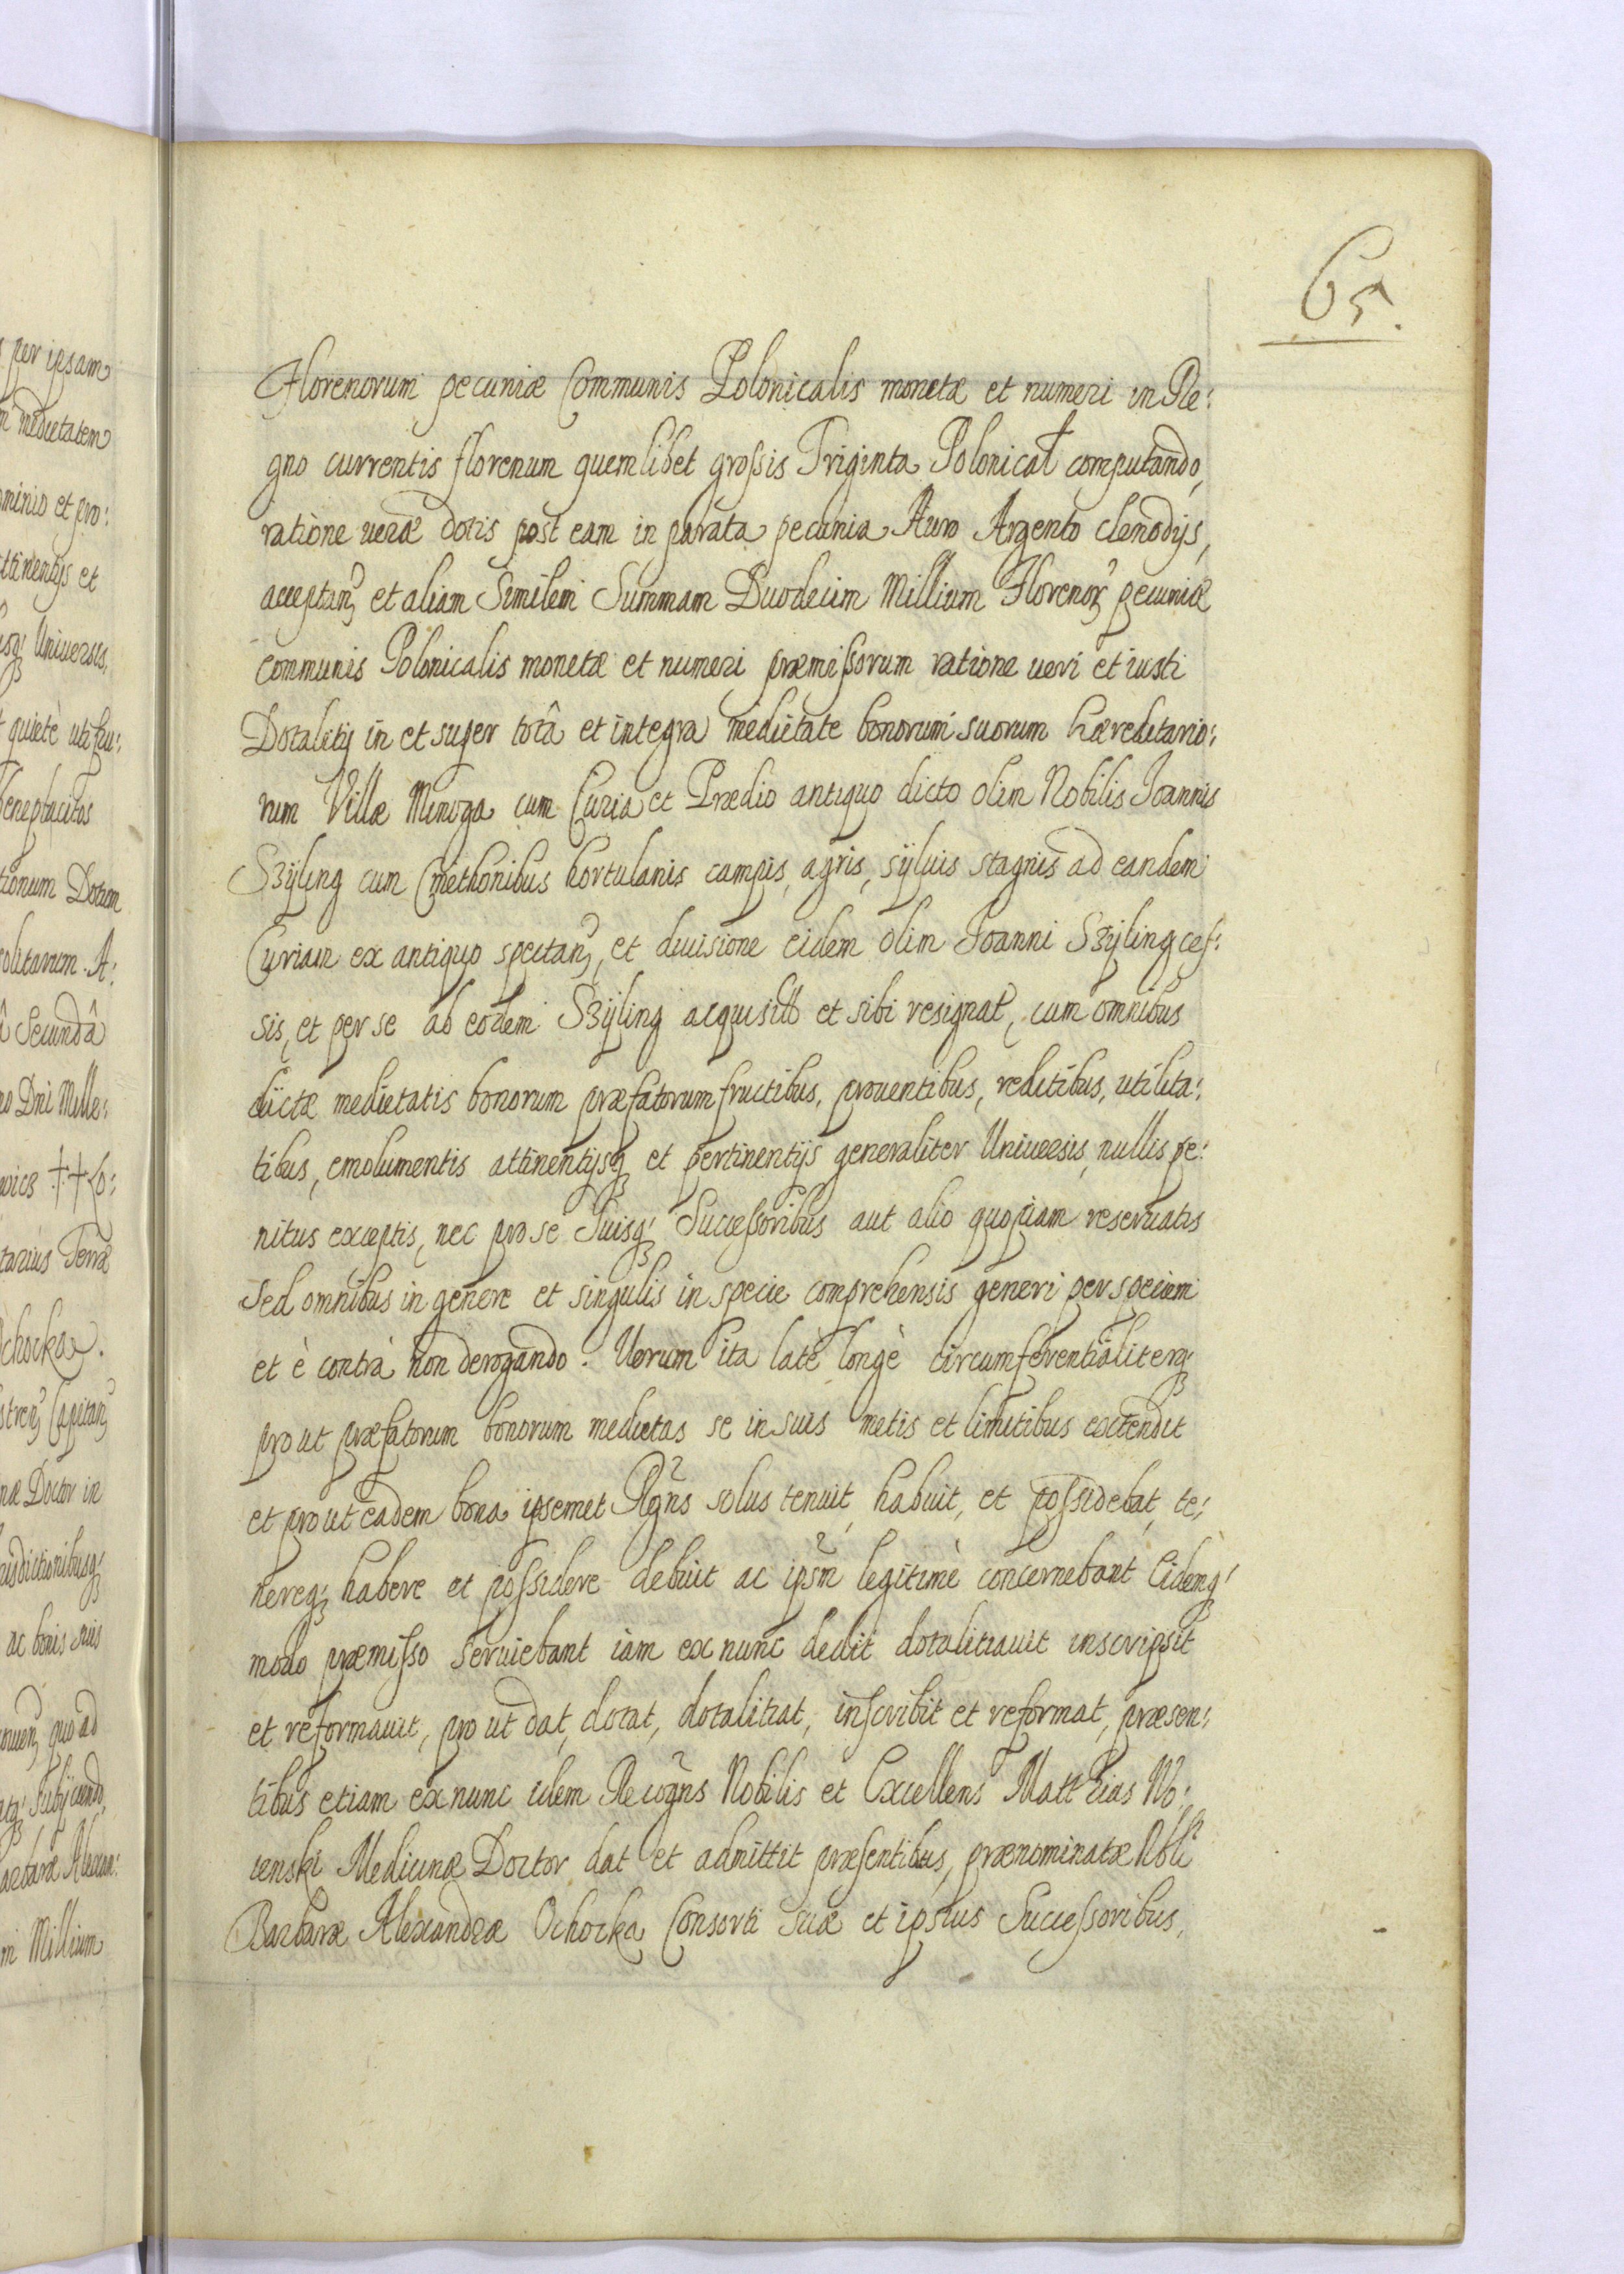 65.
Florenorum pecuniæ Communis Polonicalis monetæ et numeri in Re:
gno currentis florenum quemlibet grossis Triginta Polonical computando,
ratione veræ dotis post eam in parata pecunia Auro Argento clenodijs,
acceptan et aliam Similem Summam Duodecim Millium Florenor pecuniæ
communis Polonicalis monetæ et numeri præmissorum ratione veri et iusti
Dotalitij in et super totâ et integra medietate bonorum suorum hæreditario:
rum Villæ Minoga cum Curia et Prædio antiquo dicto olim Nobilis Joannis
Szÿling cum Cmethonibus hortulanis campis, agris, sÿluis stagnis ad eandem
Curiam ex antiquo spectan, et diuisione eidem olim Joanni Szÿling ces:
sis, et per se ab eodem Szÿling acquisit et sibi resignat, cum omnibus
dictæ medietatis bonorum præfatorum fructibus, prouentibus, reditibus, utilita:
tibus, emolumentis attinentijsq et pertinentijs generaliter Uniuersis, nullis pe:
nitus exceptis, nec pro se Suisq Successoribus aut alio quopiam reseruatis
Sed omnibus in genere et singulis in specie comprehensis generi per speciem
et è contrà non derogando. Uerum ita latè longè circumferentialiterq
prout præfatorum bonorum medietas se in suis metis et limitibus extendit
et prout eadem bona ipsemet Rgns solus tenuit, habuit, et possidebat, te:
nereq habere et possidere debuit ac ipsm legitimè concernebant Eidemq
modo præmisso seruiebant iam ex nunc dedit dotalitiauit inscripsit
et reformauit, prout dat, dotat, dotalitiat, inscribit et reformat, præsen:
tibus etiam ex nunc idem Recogns Nobilis et Excellens Matthias Wo:
ienski Medicinæ Doctor dat et admittit præsentibus, prænominatæ Nbli
Barbaræ Alexandræ Ochocka Consorti suæ et ipsius Successoribus,